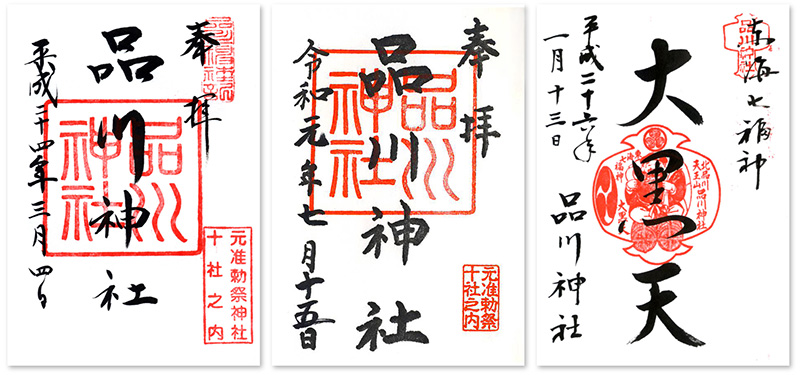 奉拝
元准勅祭神社
十社之内
品川神社
品川神社
平成二十四年三月四日
奉拝
品川神社
品川神社
元准勅祭
十社之内
令和元年七月十五日
東海七福神
大黒天
北品川
天王山
品川神社
大黒天
平成二十六年
一月十三日
品川神社